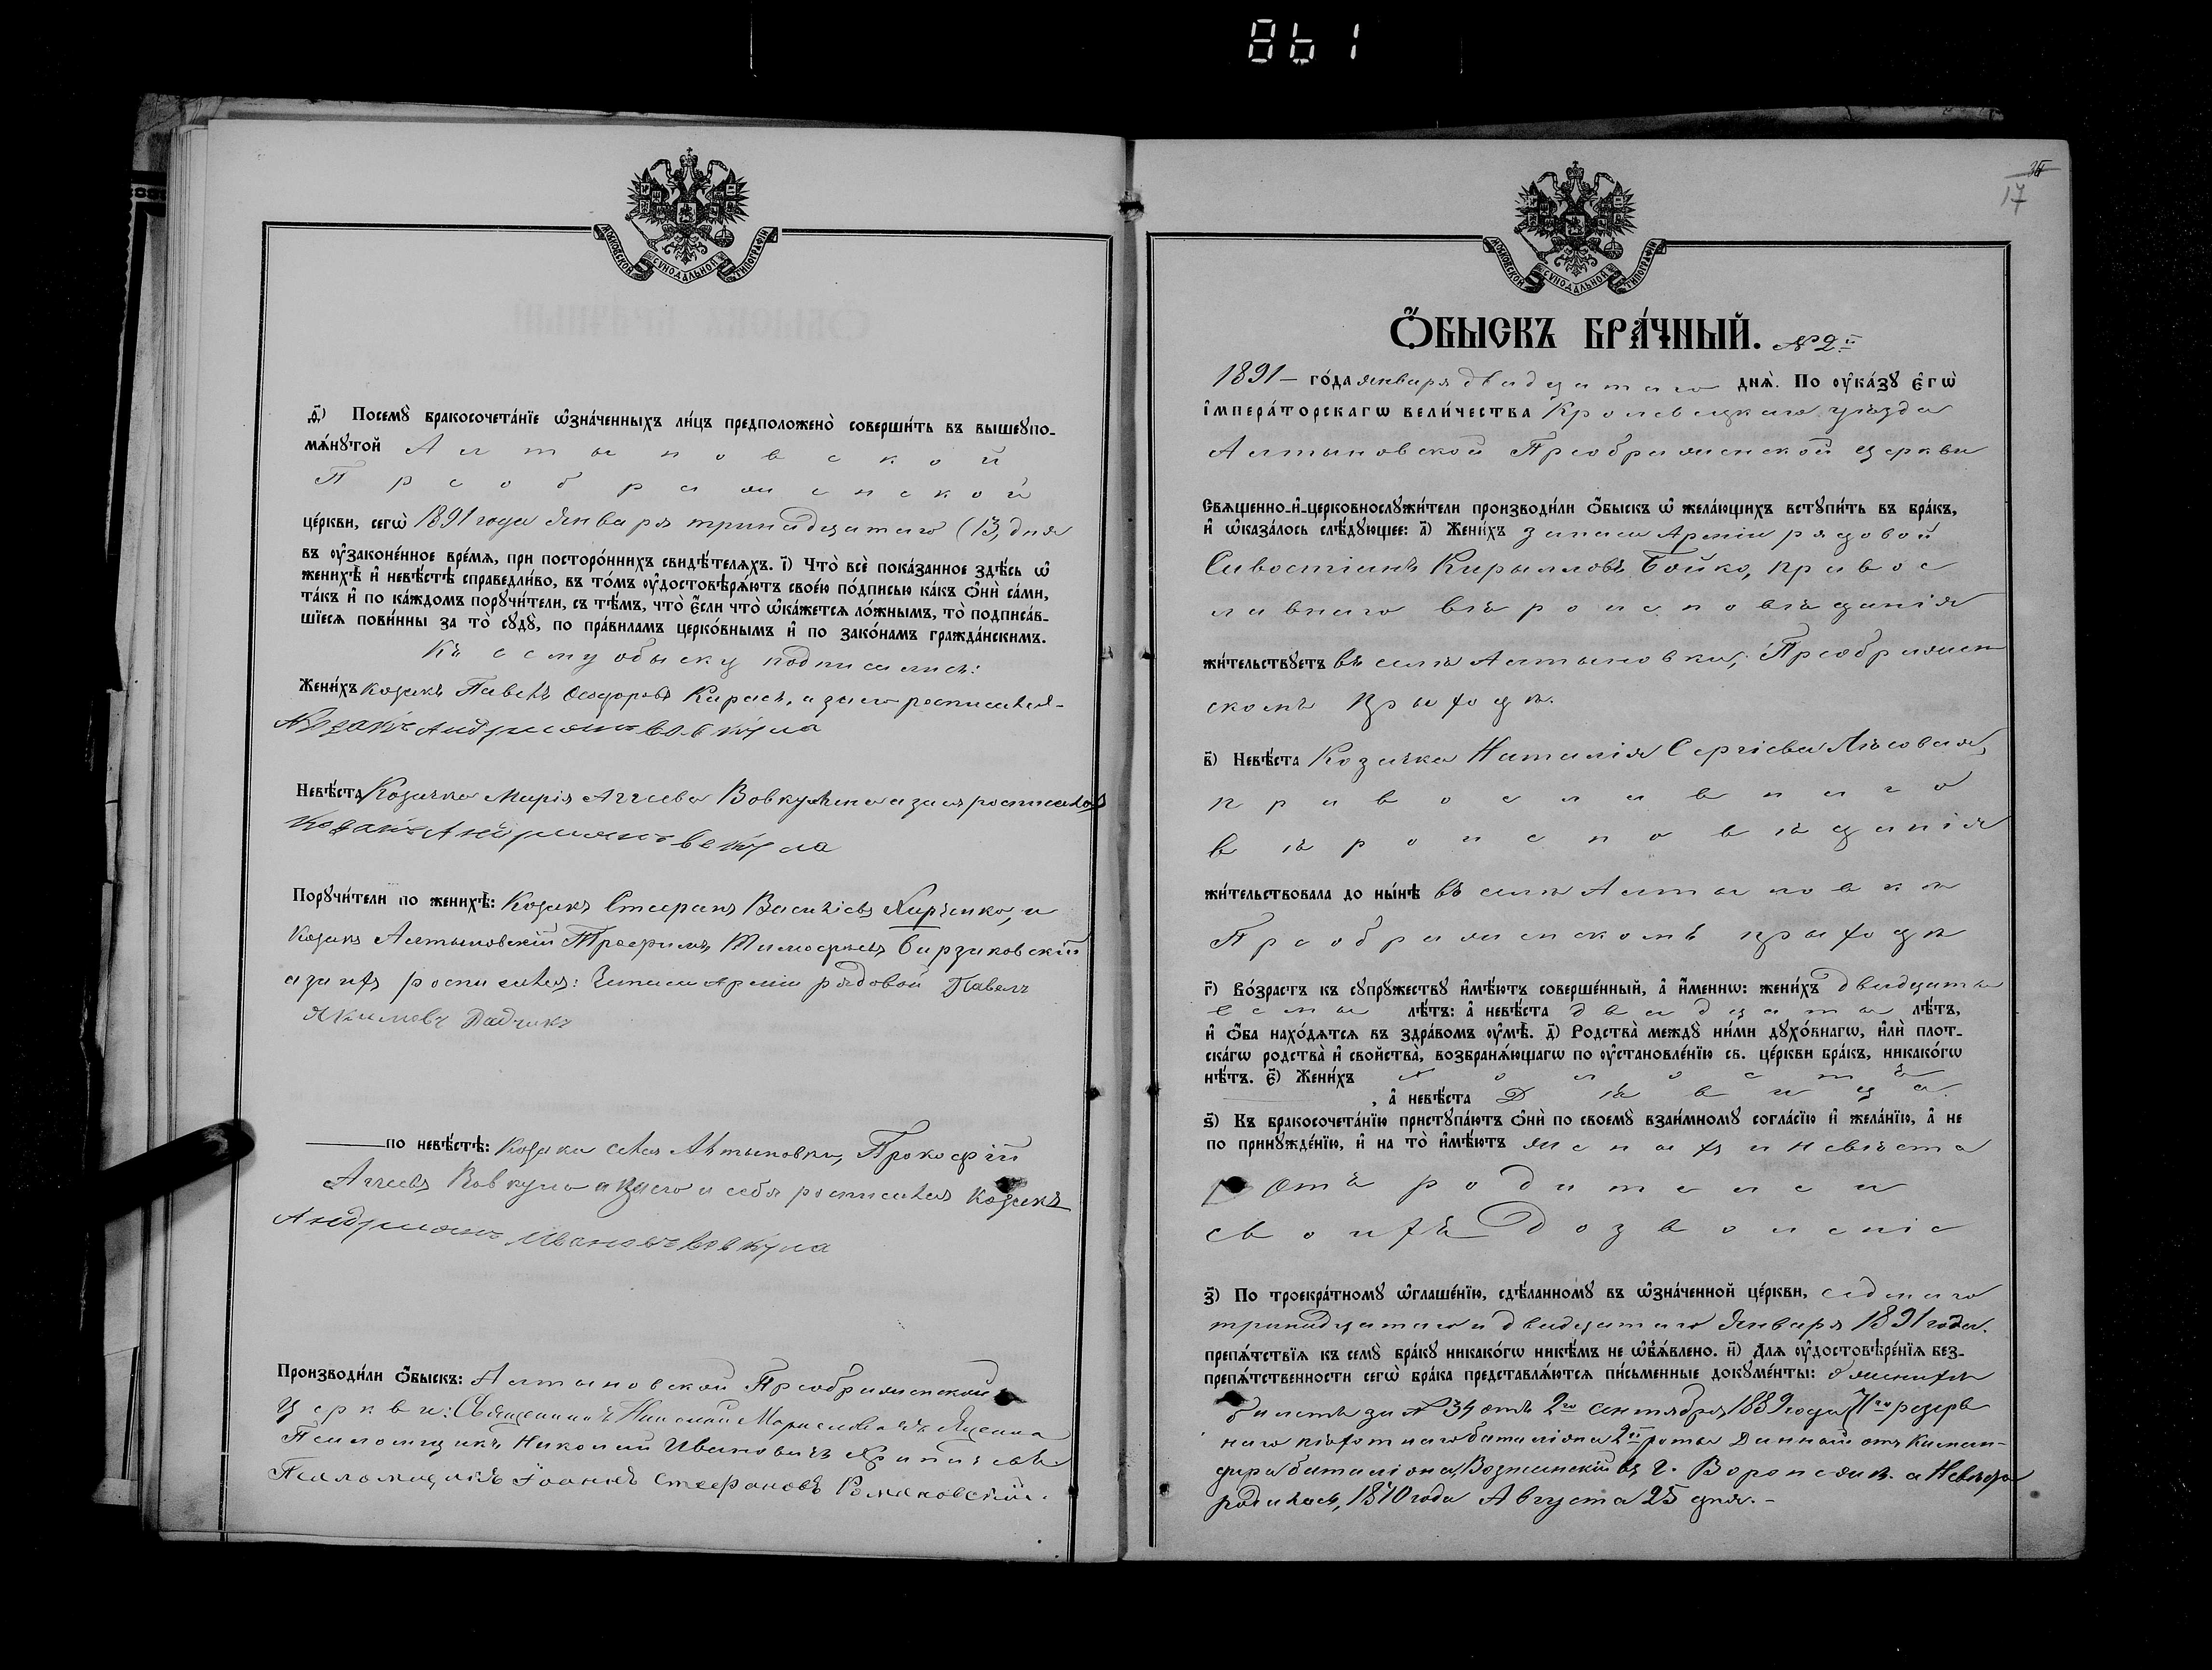 861
МОСКОВСКОЙ СѴНОДАЛЬНОЙ ТИПОГРАФІИ
ѳ҃) Посемꙋ̀ бракосочета́нїе ѡ҆зна́ченныхъ ли́цъ предположено̀ соверши́ть въ вышеꙋпо-
мѧ́нꙋтой Алтыновской
Преображенской
це́ркви, сегѡ̀ 1891 года Января тринадцатаго (13) дня
въ ᲂу҆законе́нное вре́мѧ, при посторо́ннихъ свидѣ́телѧхъ. і҃) Что̀ всѐ пока́занное здѣ́сь ѡ҆
женихѣ̀ и҆ невѣ́стѣ справедли́во, въ то́мъ ᲂу҆достовѣрѧ́ютъ свое́ю по́дписью ка́къ ѻ҆нѝ са́ми,
та́къ и҆ по ка́ждомъ порꙋчи́тели, съ тѣ́мъ, что̀ є҆́сли что̀ ѡ҆ка́жетсѧ ло́жнымъ, то̀ подписа́в-
шїесѧ пови́нны за то̀ сꙋдꙋ̀, по пра́виламъ церко́внымъ и҆ по зако́намъ гражда́нскимъ.
Къ сему обыску подписались:
Жени́хъ козакъ Павелъ Ѳеодоровъ Карась, а за его росписался
Козакъ Андриянъ Вовкула
Невѣ́ста Козачка Марія Аггеева Вовкулина а за ея росписался
Козакъ Андриянъ Вовкула
Порꙋчи́тели по женихѣ̀: Козакъ Стефанъ Васильевъ Харченко, и
Козакъ Алтыновскій Трофимъ Тимофѣевъ Бирзиковскій
а за ихъ росписался: Запаса Арміи рядовой Павелъ
Якимовъ Дадчикъ
по невѣ́стѣ: Козаки села Алтыновки, Прокофій
Аггеевъ Вовкула а за его и себя росписался Козакъ
Андриянъ Ивановъ Вовкула
Производи́ли ѻ҆́быскъ: Алтыновской Преображенской
церкви: Священникъ Николай
Псаломщикъ Николай Ивановичъ
Псаломщикъ Іоаннъ Стефановъ Романовскій.
17
МОСКОВСКОЙ СѴНОДАЛЬНОЙ ТИПОГРАФІИ
Ѻ҆́БЫСКЪ БРА́ЧНЫЙ. № 2й
1891 – го́да января двадцатаго днѧ̀. По ᲂу҆ка́зꙋ є҆гѡ̀
і҆мпера́торскагѡ вели́чества Кролевецкаго уѣзда
Алтыновской Преображенской церкви
Свѧщенно-и҆-церковнослꙋжи́тели производи́ли ѻ҆́быскъ ѡ҆ жела́ющихъ встꙋпи́ть въ бра́къ,
и҆ ѡ҆каза́лось слѣ́дꙋющее: а҃) Жени́хъ запаса Арміи рядовой
Савостіанъ Кирылловъ Бойко, право с
лавнаго вѣроисповѣданія
жи́тельствꙋетъ въ селѣ Алтыновки, Преображен
скомъ прыходѣ.
в҃) Невѣ́ста Козачка Наталія Сергіева Лѣсовая,
православнаго
вѣроисповѣданія
жи́тельствовала до ны́нѣ въ селѣ Алтыновки
Преображенскомъ прыходѣ
г҃) Во́зрастъ къ сꙋпрꙋ́жествꙋ и҆мѣ́ютъ соверше́нный, а҆ и҆́меннѡ: жени́хъ двадцать
семь лѣ́тъ: а҆ невѣ́ста двадцать лѣ́тъ,
и҆ ѻ҆́ба нахо́дѧтсѧ въ здра́вомъ ᲂу҆мѣ̀. д҃) Родства̀ междꙋ̀ ни́ми дꙋхо́внагѡ, и҆лѝ плот-
ска́гѡ родства̀ и҆ сво́йства̀, возбранѧ́ющагѡ по ᲂу҆становле́нїю св. це́ркви бра́къ, никако́гѡ
нѣ́тъ. є҃) Жени́хъ холостъ
, а҆ невѣ́ста Дѣвица.
ѕ҃) Къ бракосочета́нїю пристꙋпа́ютъ ѻ҆нѝ по своемꙋ̀ взаи́мномꙋ согла́сїю и҆ жела́нїю, а҆ не
по принꙋжде́нїю, и҆ на то̀ и҆мѣ́ютъ женихъ и невѣста
отъ родителей
своихъ дозволеніе
з҃) По троекра́тномꙋ ѡ҆глаше́нїю, сдѣ́ланномꙋ въ ѡ҆зна́ченной це́ркви, седмаго
тринадцатаго и двадцатаго Января 1891 года.
препѧ́тствїѧ къ семꙋ̀ бра́кꙋ никако́гѡ никѣ́мъ не ѡ҆б̾ѧ́влено. и҃) Длѧ ᲂу҆достовѣре́нїѧ без-
препѧ́тственности сегѡ̀ бра́ка представлѧ́ютсѧ пи́сьменные докꙋме́нты: о женихѣ
билетъ за № 34 отъ 2го сентября 1889 года 71го резерв
наго пѣхотнаго баталіона 2й роты Данный отъ Коман-
дира баталіона въ г. Воронежѣ. а Невѣста
родилась, 1870 года Августа 25 дня. –